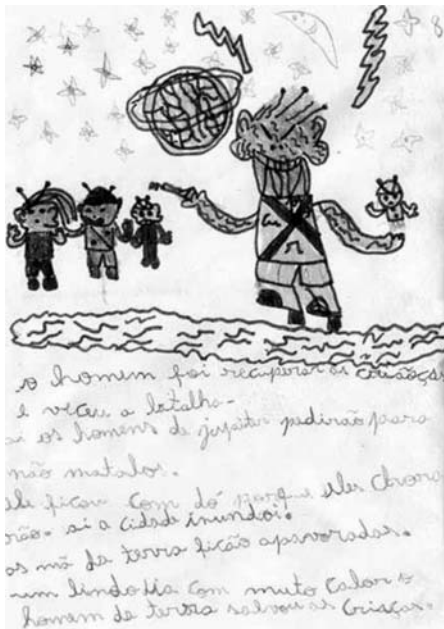 8
o homem foi recuperar as crisãças
e viceu a batalha.
ai os homens de jupiter pedirão para
não matalos.
ele ficou com dó porque eles chora
rão. ai a cidade inundoi.
as mã da terra ficão apavoradas.
um lindo dia com muto calor o
homem da terra salvou as criaças.